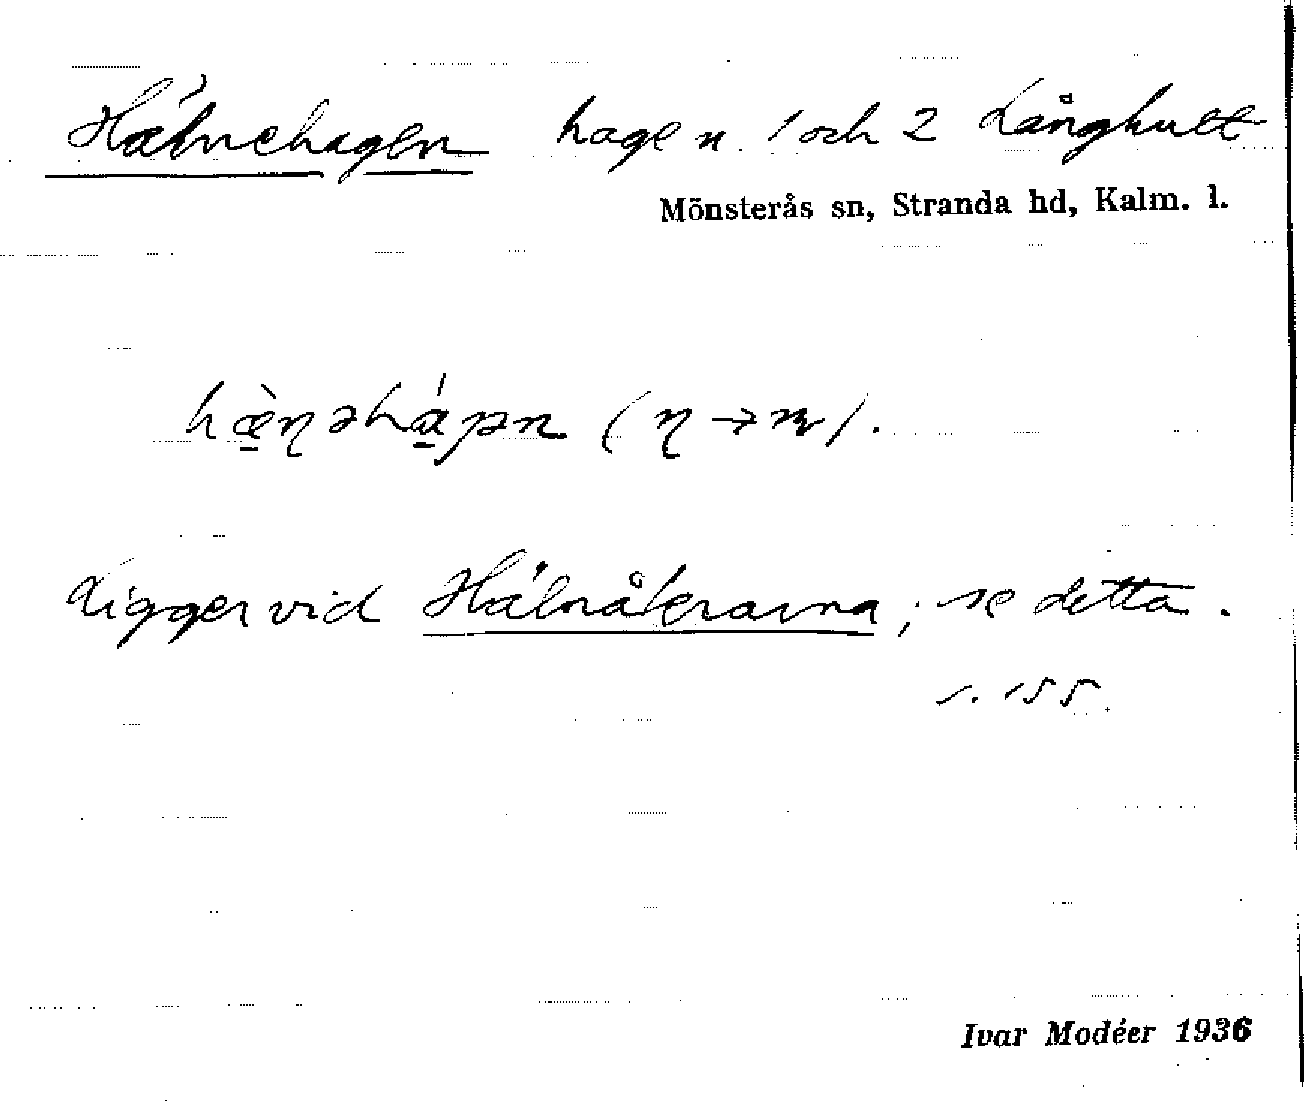 Hälnehagen hage n. 1 och 2 Långhult
Mönsterås sn, Stranda hd, Kalm. l.
Ligger vid Hälnåkrarna; se detta.
s. 155.
Ivar Modéer 1936